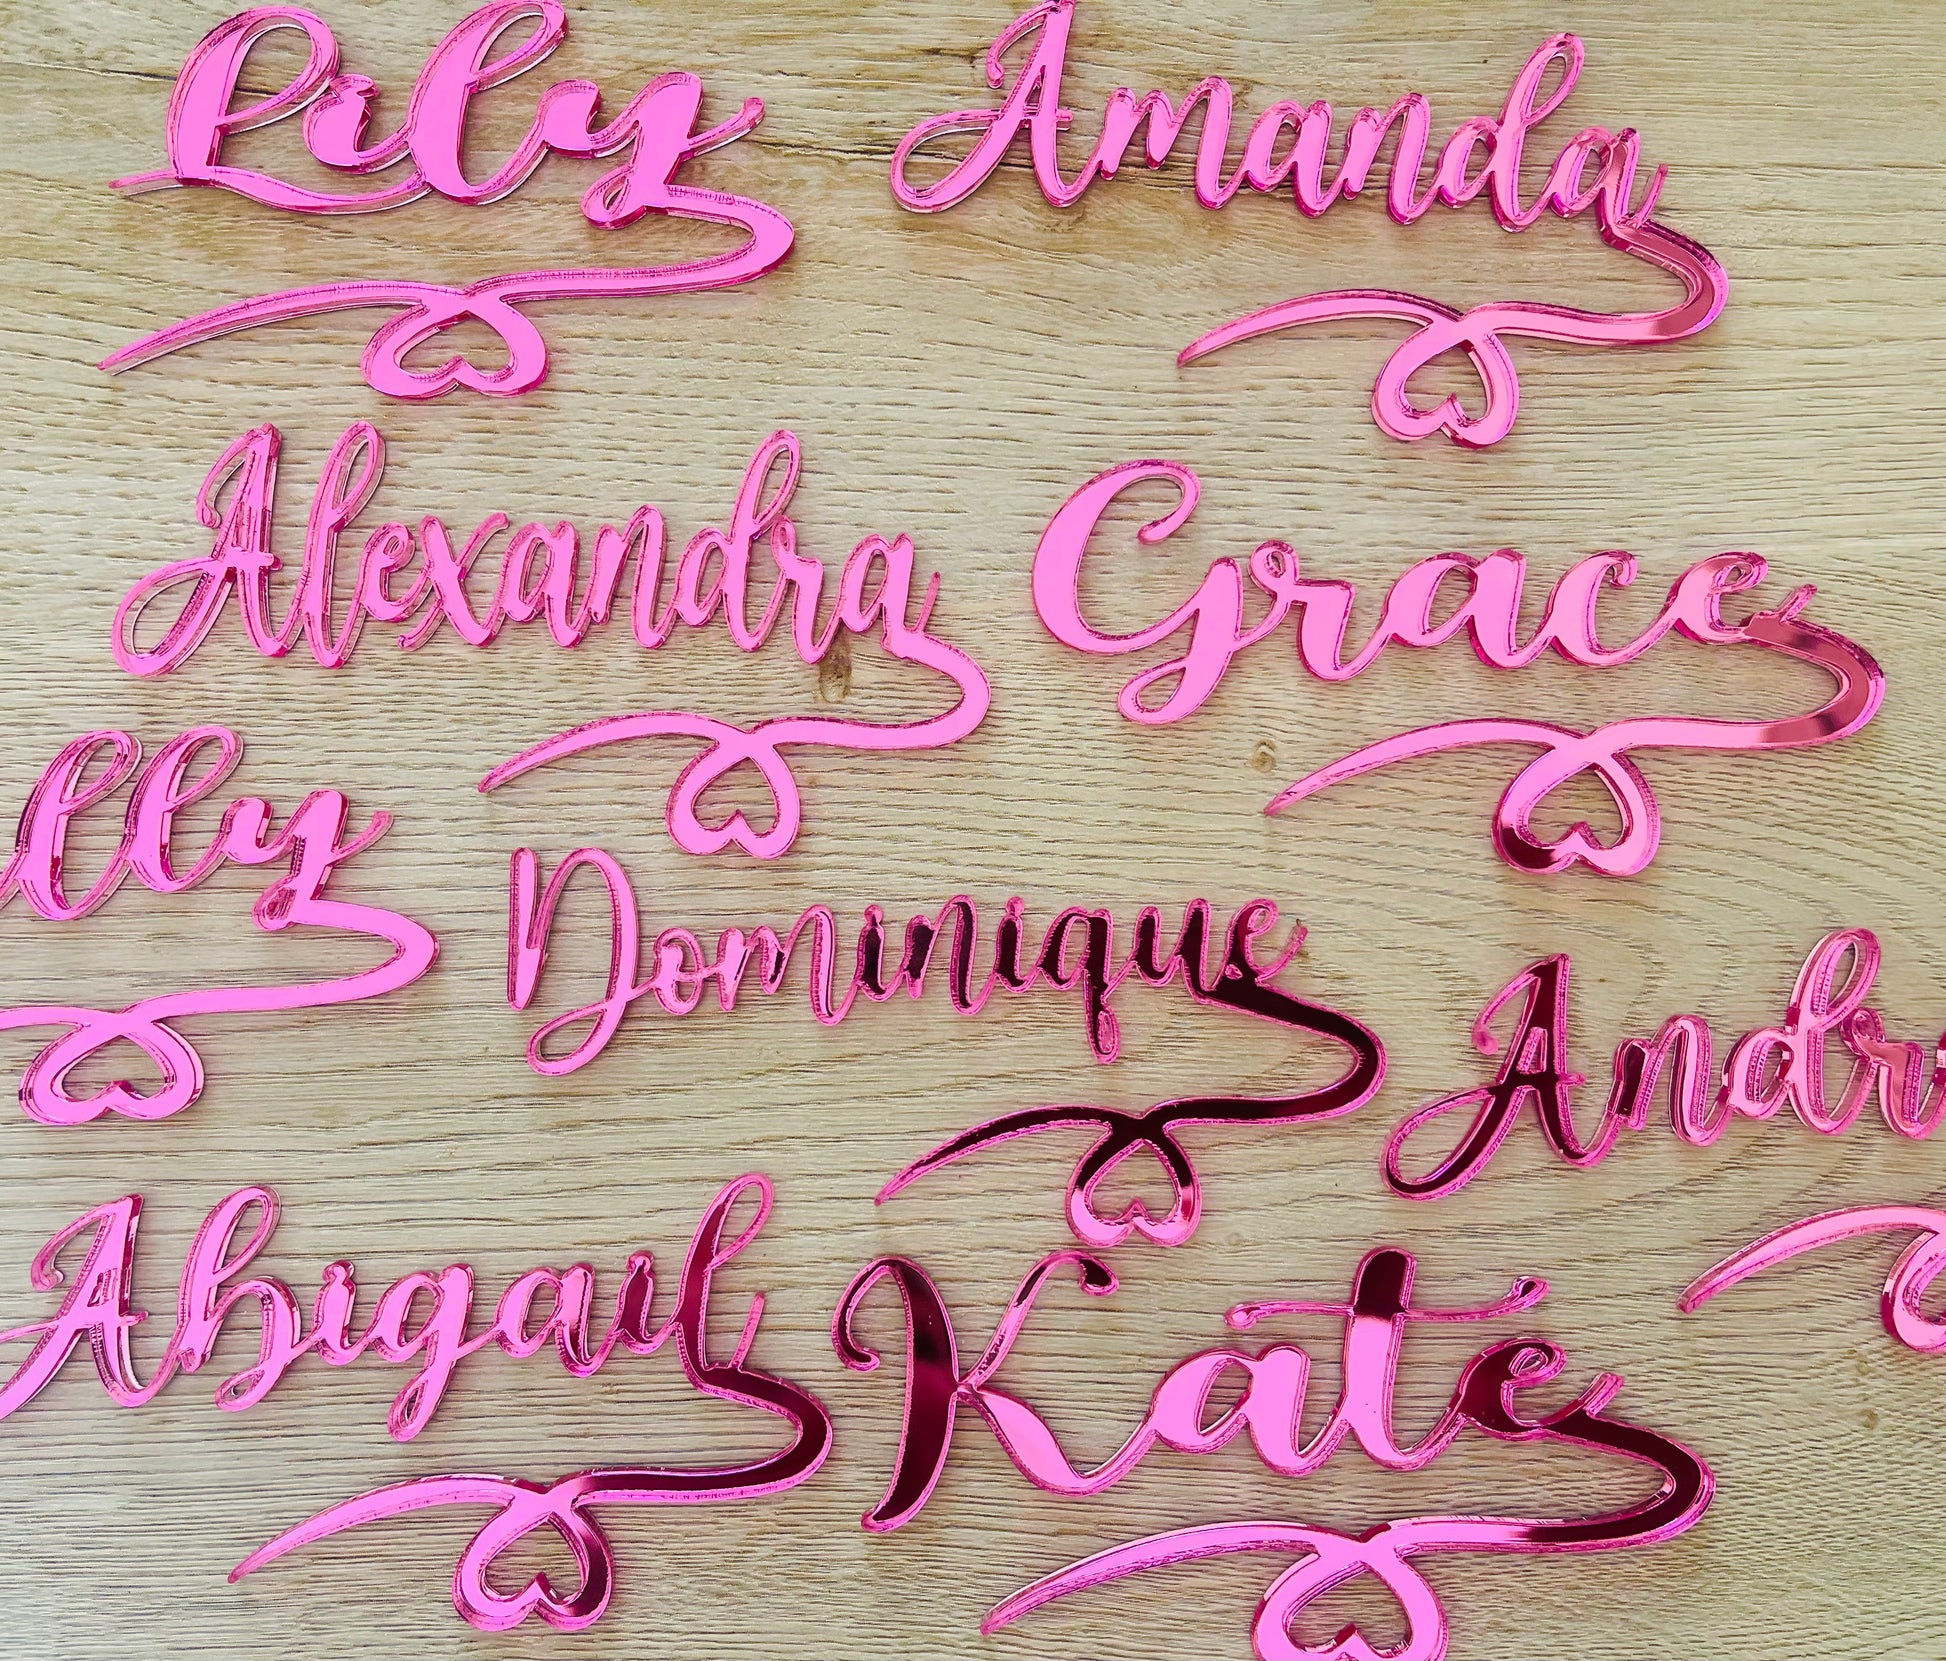 Lily
Amanda
Alexandra
Grace
lly
Dominique
Andr
Abigail
Kate